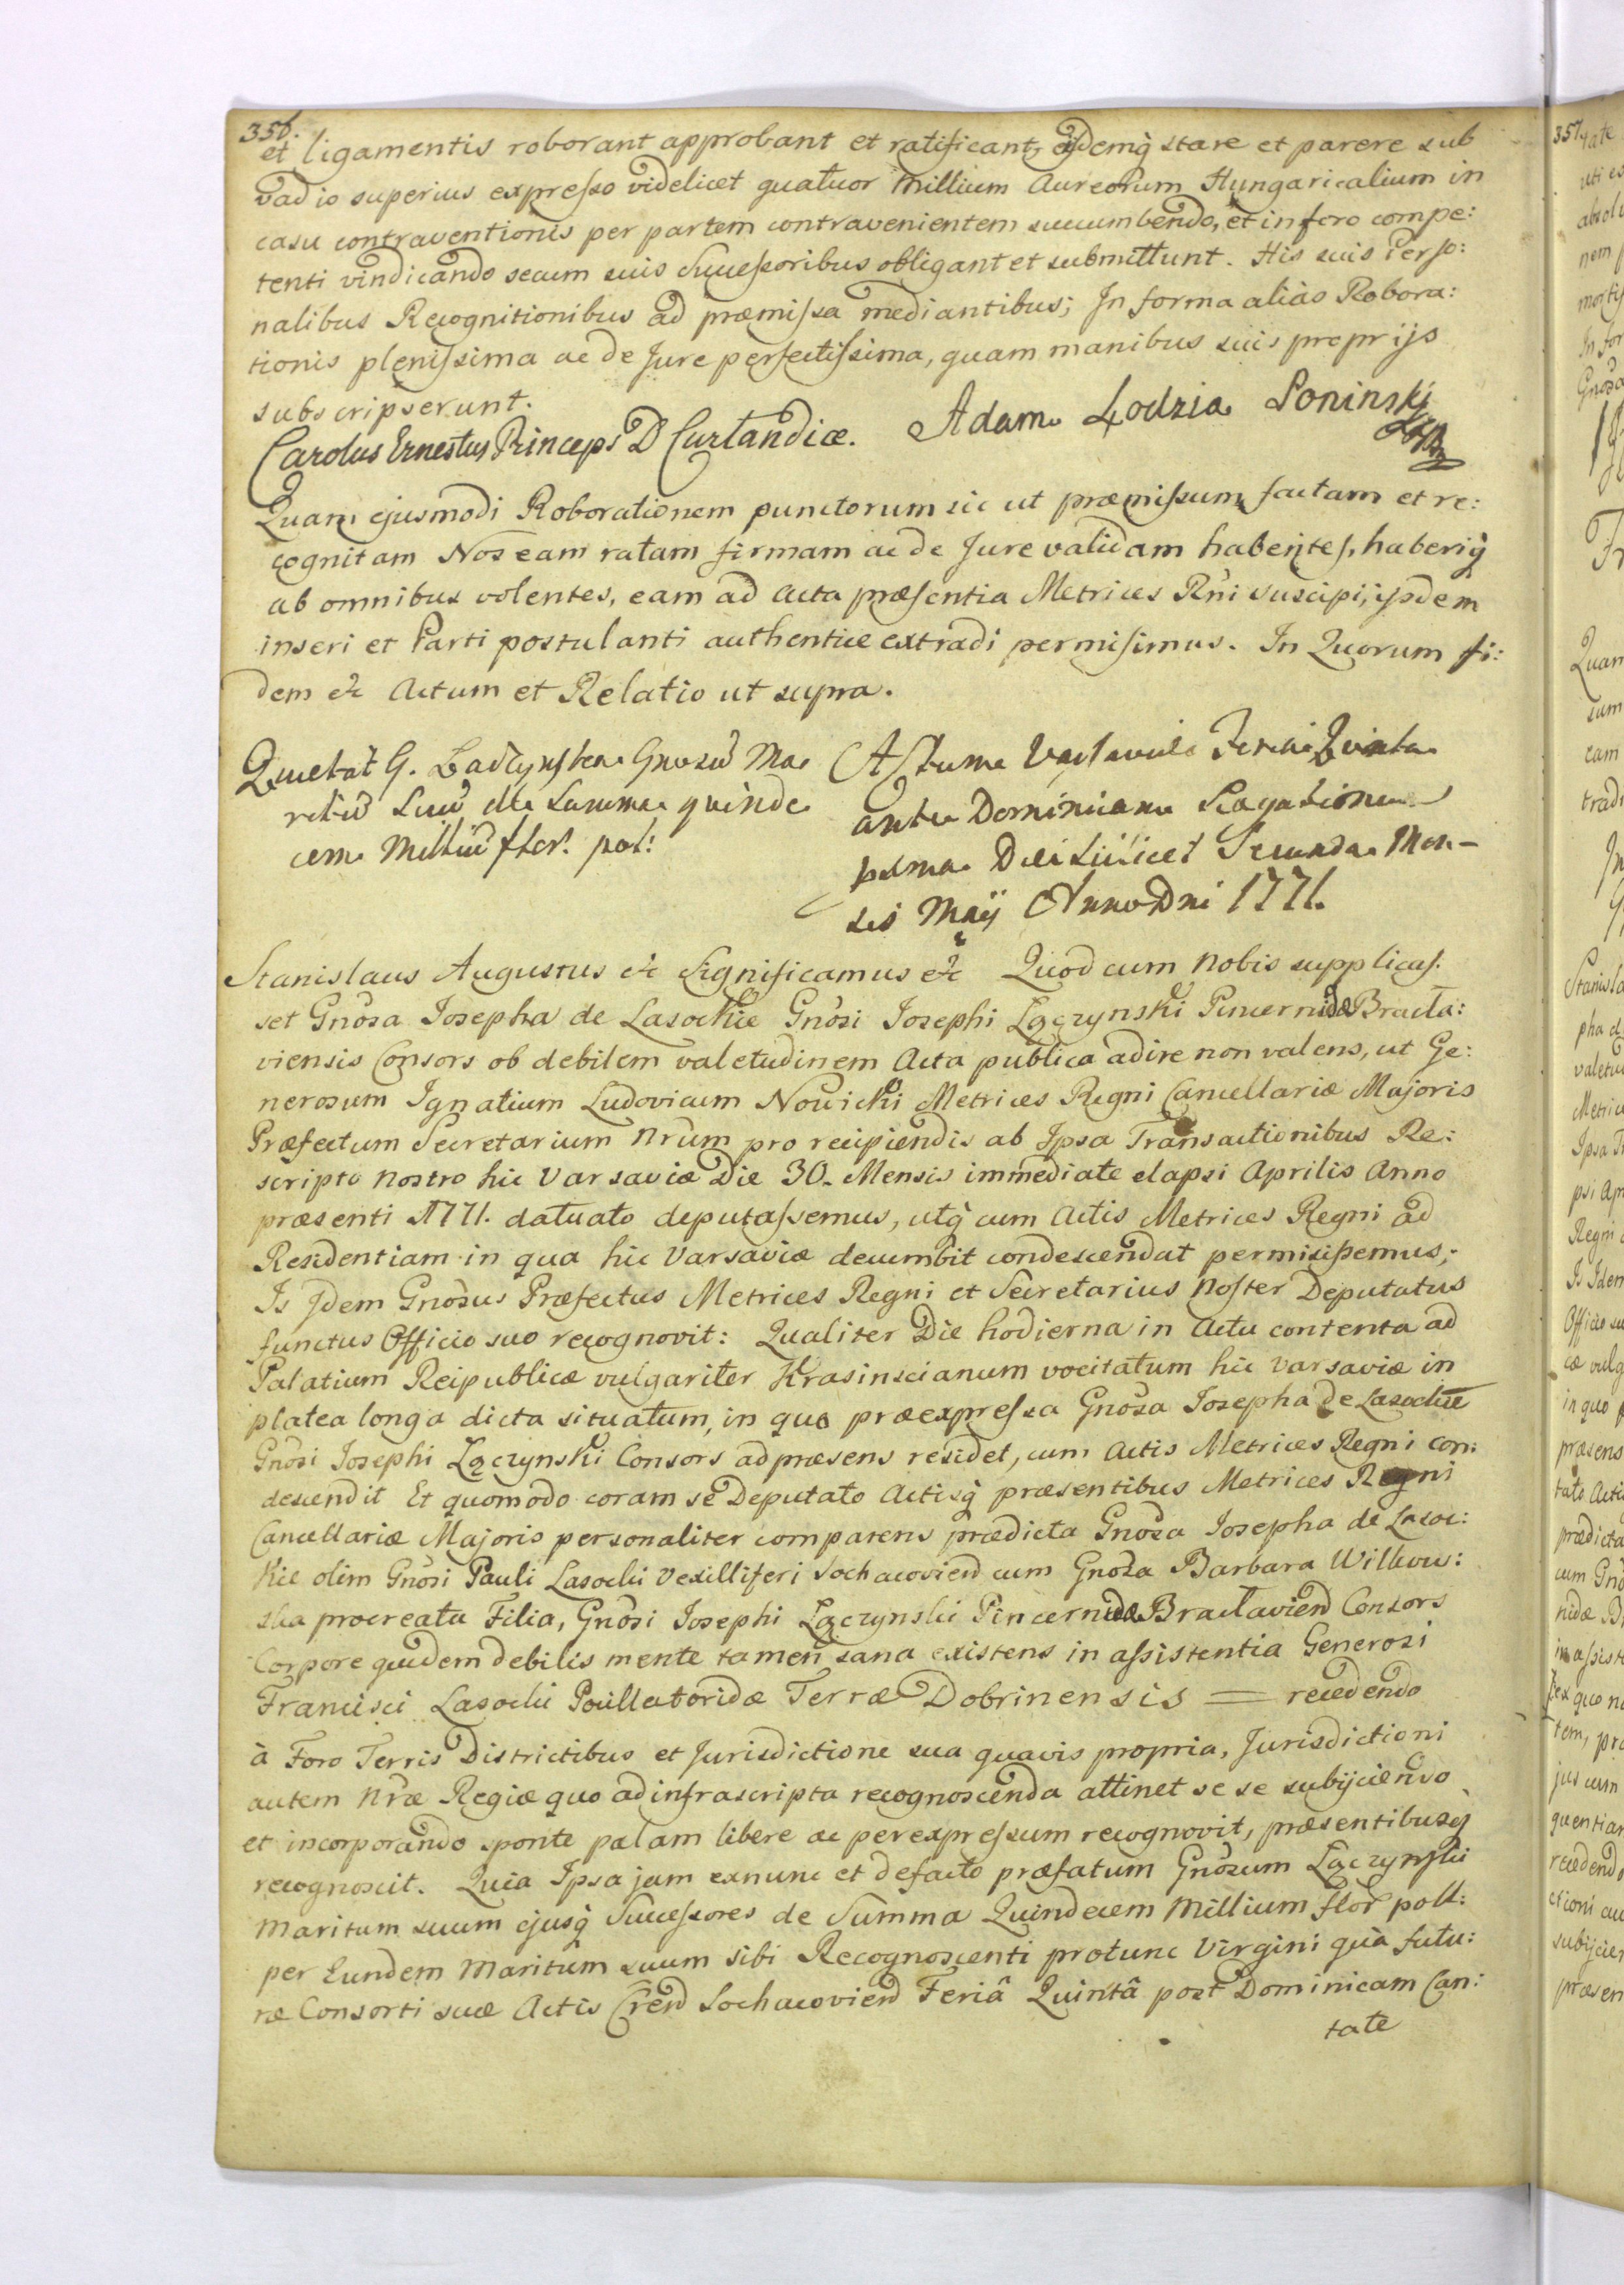 356.
et ligamentis roborant approbant et ratificant, ijdemq̀ stare et parere sub
vadio superius expresso videlicet quatuor Millium Aureorum Hungaricalium in
casu contraventionis per partem contravenientem succumbendo, et in foro compe:
tenti vindicando secum suis Successoribus obligant et submittunt. His suis Perso:
nalibus Recognitionibus ad præmissa mediantibus; In forma aliàs Robora:
tionis plenissima ac de Jure perfectissima, quam manibus suis proprijs
subscripserunt.
Carolus Ernestus Princeps D Curlandiæ. Adam Łodzia Poninski
Quam ejusmodi Roborationem punctorum sic ut præmissum factam et re:
cognitam Nos eam ratam firmam ac de Jure validam habentes, haberiq̀
ab omnibus volentes, eam ad Acta præsentia Metrices Rñi suscipi, ijsdem
inseri et Parti postulanti authentice extradi permisimus. In Quorum fi:
dem etc Actum et Relatio ut supra.
Quietat G. Łaczynska Gnosũ Ma
ritũ Suũ de Summa quinde
cem Milliũ flor. pol:
Actum Varsaviæ Feria Quinta
ante Dominicam Rogationum
proxima Die scilicet Secunda Men-
sis Maÿ Anno Dni 1771.
Stanislaus Augustus etc Significamus etc Quod cum Nobis supplicas.
set Gnõsa Josepha de Lasockie Gnõsi Josephi Łączynski Pincernidæ Bracła:
viensis Consors ob debilem valetudinem Acta publica adire non valens, ut Ge:
nerosum Ignatium Ludovicum Nowicki Metrices Regni Cancellariæ Majoris
Præfectum Secretarium Nrũm pro recipiendis ab Ipsa Transactionibus Re:
scripto Nostro hic Varsaviæ Die 30. Mensis immediate elapsi Aprilis Anno
præsenti 1771. datuato deputassemus, utq̀ cum Actis Metrices Regni ad
Residentiam in qua hic Varsaviæ decumbit condescendat permisissemus;
Is Idem Gnõsus Præfectus Metrices Regni et Secretarius Noster Deputatus
functus Officio suo recognovit: Qualiter Die hodierna in Actu contenta ad
Palatium Reipublicæ vulgariter Krasinscianum vocitatum hic Varsaviæ in
platea longa dicta situatum, in quo præexpressa Gnõsa Josepha de Lasockie
Gnõsi Josephi Łączynski Consors ad præsens residet, cum Actis Metrices Regni con:
descendit Et quomodo coram se Deputato Actisq̀ præsentibus Metrices Regni
Cancellariæ Majoris personaliter comparens prædicta Gnõsa Josepha de Lasoc:
kie olim Gnõsi Pauli Lasocki Vexilliferi Sochacovien̄ cum Gnõsa Barbara Wilkow:
ska procreata Filia, Gnõsi Josephi Łączynski Pincernidæ Bracłavien̄ Consors
Corpore quidem debilis mente tamen sana existens in assistentia Generosi
Francisci Lasocki Pocillatoridæ Terræ Dobrinensis = recedendo
à Foro Terris Districtibus et Jurisdictione sua quavis propria, Jurisdictioni
autem Nræ Regiæ quo ad infrascripta recognoscenda attinet se se subijciendo
et incorporando sponte palam libere ac per expressum recognovit, præsentibusq̀
recognoscit. Quia Ipsa jam exnunc et defacto præfatum Gnõsum Łączynski
Maritum suum ejusq̀ Successores de Summa Quindecem Millium flor poll:
per Eundem Maritum suum sibi Recognoscenti protunc Virgini quà futu:
ræ Consorti suæ Actis Cren̄ Sochacovien̄ Feriâ Quintâ post Dominicam Can:
tate